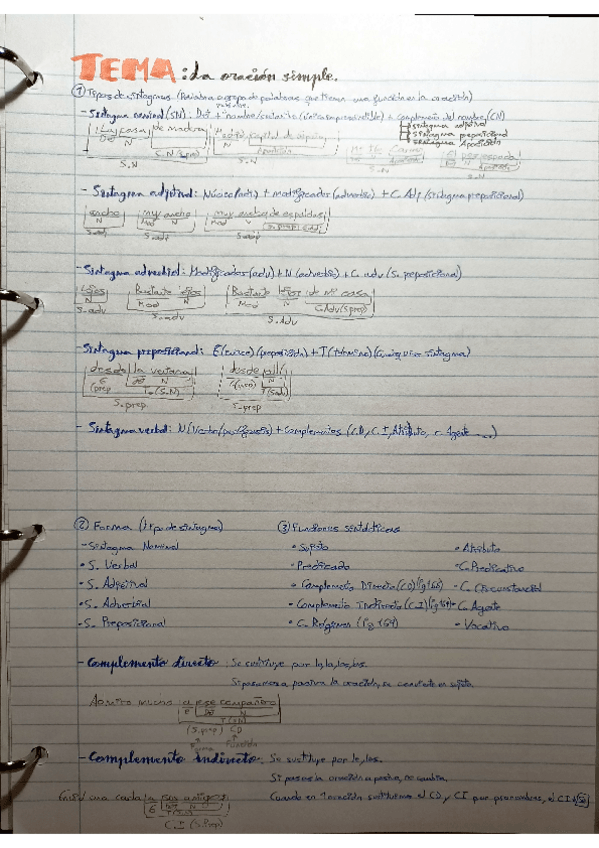 TEMA: La oración simple.
① Tipos de sintagmas (Palabra o grupo de palabras que tienen una función en la oración)
- Sintagma nominal (SN): Det + nombre/ + Complemento del nombre (CN)
sintagma adjetival
sintagma preposicional
sintagma Aposición
La casa de madera
Det N
S.N (S.prep)
Aposición
S.N S.N
- Sintagma adjetival: Núcleo (adj) + modificador (adverbio) + C. Adj (sintagma preposicional)
ancho muy ancho muy ancho de espaldas
N mod N mod N
S.adj S.adj S.adj
- Sintagma adverbial: Modificador (adv) + N (adverbio) + C. adv (S. preposicional)
Lejos Bastante lejos Bastante lejos de mi casa
N Mod N Mod N C.Adv (S.prep)
S.adv S.adv S.Adv
- Sintagma preposicional: E (enlace) (preposición) + T (término) (Cualquier sintagma)
desde la ventana desde allí
E Det N N
(prep T (S.N) T (S.adv)
S.prep S.prep
- Sintagma verbal: N (Verbo/perífrasis) + Complementos (CD, C.I, Atributo, C. Agente ....)
② Forma (tipo de sintagma) ③ Funciones sintácticas
- Sintagma Nominal • Sujeto • Atributo
• S. Verbal • Predicado • C. Predicativo
• S. Adjetival • Complemento Directo (CD) (pg 166) - C. Circunstancial
• S. Adverbial • Complemento Indirecto (C.I) (pg 167) • C. Agente
• S. Preposicional • C. Régimen (pg 167) - Vocativo
- Complemento directo: Se sustituye por lo, la, los, las.
Si pasamos a pasiva la oración, se convierte en sujeto.
Admiro mucho a ese compañero
E Det N
T (SN)
(S.prep) CD
Forma Función
- Complemento indirecto: Se sustituye por le, les.
Si pasas la oración a pasiva, no cambia.
Escribí una carta a sus amigos
Cuando en 1 oración sustituimos el CD y CI por pronombres, el CI → Se
E Det N
T (SN)
C.I (S.Prep)